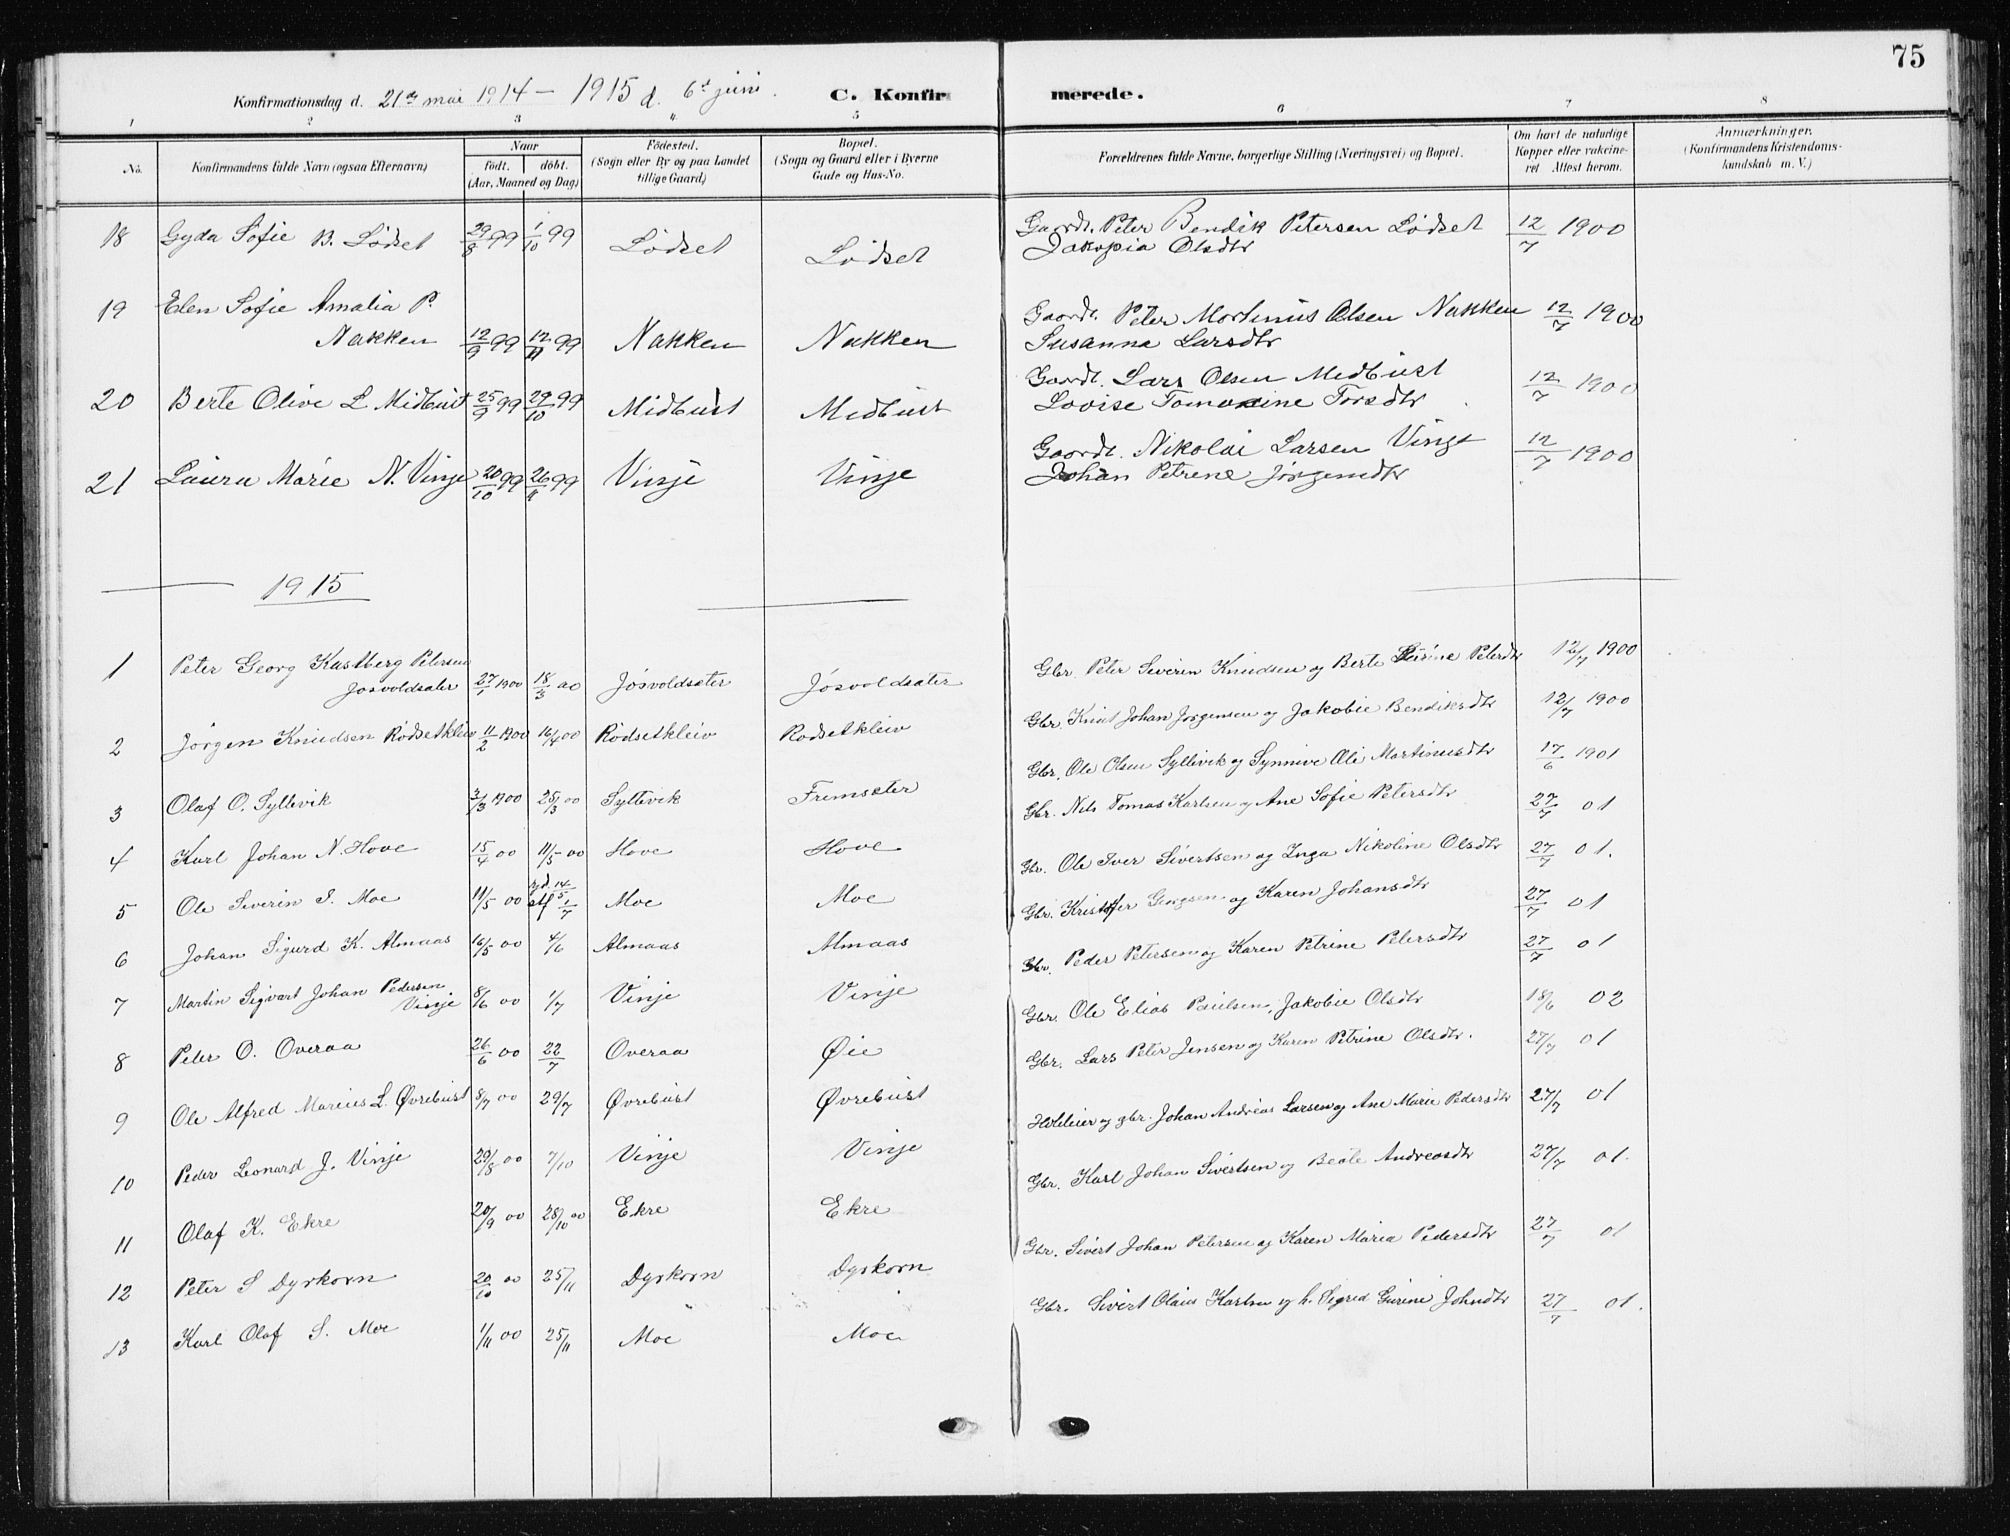 75
Konfirmationsdag d. 21de mai 1914 – 1915 d. 6te juni. C. Konfirmerede.
1 2 3 4 5 6 7 8
No. Konfirmandens fulde Navn (ogsaa Efternavn) Naar født. døbt. (Aar, Maaned og Dag) Fødested. (Sogn eller By og paa Landet tillige Gaard) Bopæl. (Sogn og Gaard eller i Byerne Gade og Hus-No. Forældrenes fulde Navne, borgerlige Stilling (Næringsvei) og Bopæl. Om havt de naturlige Kopper eller vakcineret Attest herom. Anmærkninger. (Konfirmandens Kristendomskundskab m. V.)
18 Gyda Sofie B. Lødset 29/8 99 1/10 99 Lødset Lødset Gaardt. Peter Bendik Petersen Lødset 12/7 1900
Jakopia Olsdtr
19 Elen Sofie Amalia P.
Nakken 12/9 99 12/11 99 Nakken Nakken Gaardt. Peter Mortinus Olsen Nakken 12/7 1900
Susanna Larsdtr
20 Berte Olive L Midbust 25/9 99 29/10 99 Midbust Midbust Gaardt. Lars Olsen Midbust 12/7 1900
Lovise Torsdtr
21 Laura Marie N. Vinje 20/10 99 26/11 99 Vinje Vinje Gaardt. Nikolai Larsen Vinge 12/7 1900
Johan Petrene Jørgensdtr
1915
1 Peter Georg Kastberg Petersen
Jøsvoldsæter 27/1 1900 18/3 00 Jøsvoldsæter Jøsvoldsæter Gbr. Peter Severin Knudsen og Berte Petersdtr 12/7 1900
2 Jørgen Knudsen Rødsetkleiv 11/2 1900 16/4 00 Rødsetkleiv Rødsetkleiv Gbr. Knut Johan Jørgensen og Jakobie Bendiksdtr 12/7 1900
3 Olaf O. Syltevik 3/3 1900 25/3 00 Syltevik Fremsæter Gbr. Ole Olsen Syltevik og Synnive Oli Martinusdtr 17/6 1901
4 Karl Johan N. Hove 15/4 00 11/5 00 Hove Hove Gbr. Nils Tomas Karlsen og Ane Sofie Petersdtr 27/7 01
5 Ole Severin S. Moe 11/5 00 14/5 1/7 Moe Moe Gbr. Ole Iver Sivertsen og Inga Nikoline Olsdtr 27/7 01.
6 Johan Sigurd K. Almaas 16/5 00 4/6 Almaas Almaas Gbr. Kristofer Georgsen og Karen Johansdtr 27/7 01
7 Martin Sigvart Johan Pedersen
Vinje 8/6 00 1/7 Vinje Vinje Gbr. Peder Petersen og Karen Petrine Petersdtr 27/7 01
8 Peter O. Overaa 26/6 00 22/7 Overaa Øie Gbr. Ole Elias Paulsen, Jakobie Olsdtr 18/6 02
9 Ole Alfred Marius L. Øvrebust 8/7 00 29/7 Øvrebust Øvrebust Gbr. Lars Peter Jensen og Karen Petrine Olsdtr. 27/7 01
10 Peder Leonard J. Vinje 29/8 00 7/10 Vinje Vinje og gbr. Johan Andreas Larsen og Ane Marie Pedersdtr 27/7 01
11 Olaf K. Ekre 20/9 00 28/10 00 Ekre Ekre Gbr. Karl Johan Sivertsen og Beate Andreasdtr 27/7 01.
12 Peter S Dyrkorn 20/10 00 25/11 Dyrkorn Dyrkorn Gbr. Sivert Johan Petersen og Karen Maria Pedersdtr 27/7 01
13 Karl Olaf S. Moe 1/11 00 25/11 Moe Moe Gbr. Sivert Olaus Karlsen og h. Sigrid Gurine Johnsdtr 27/7 01.